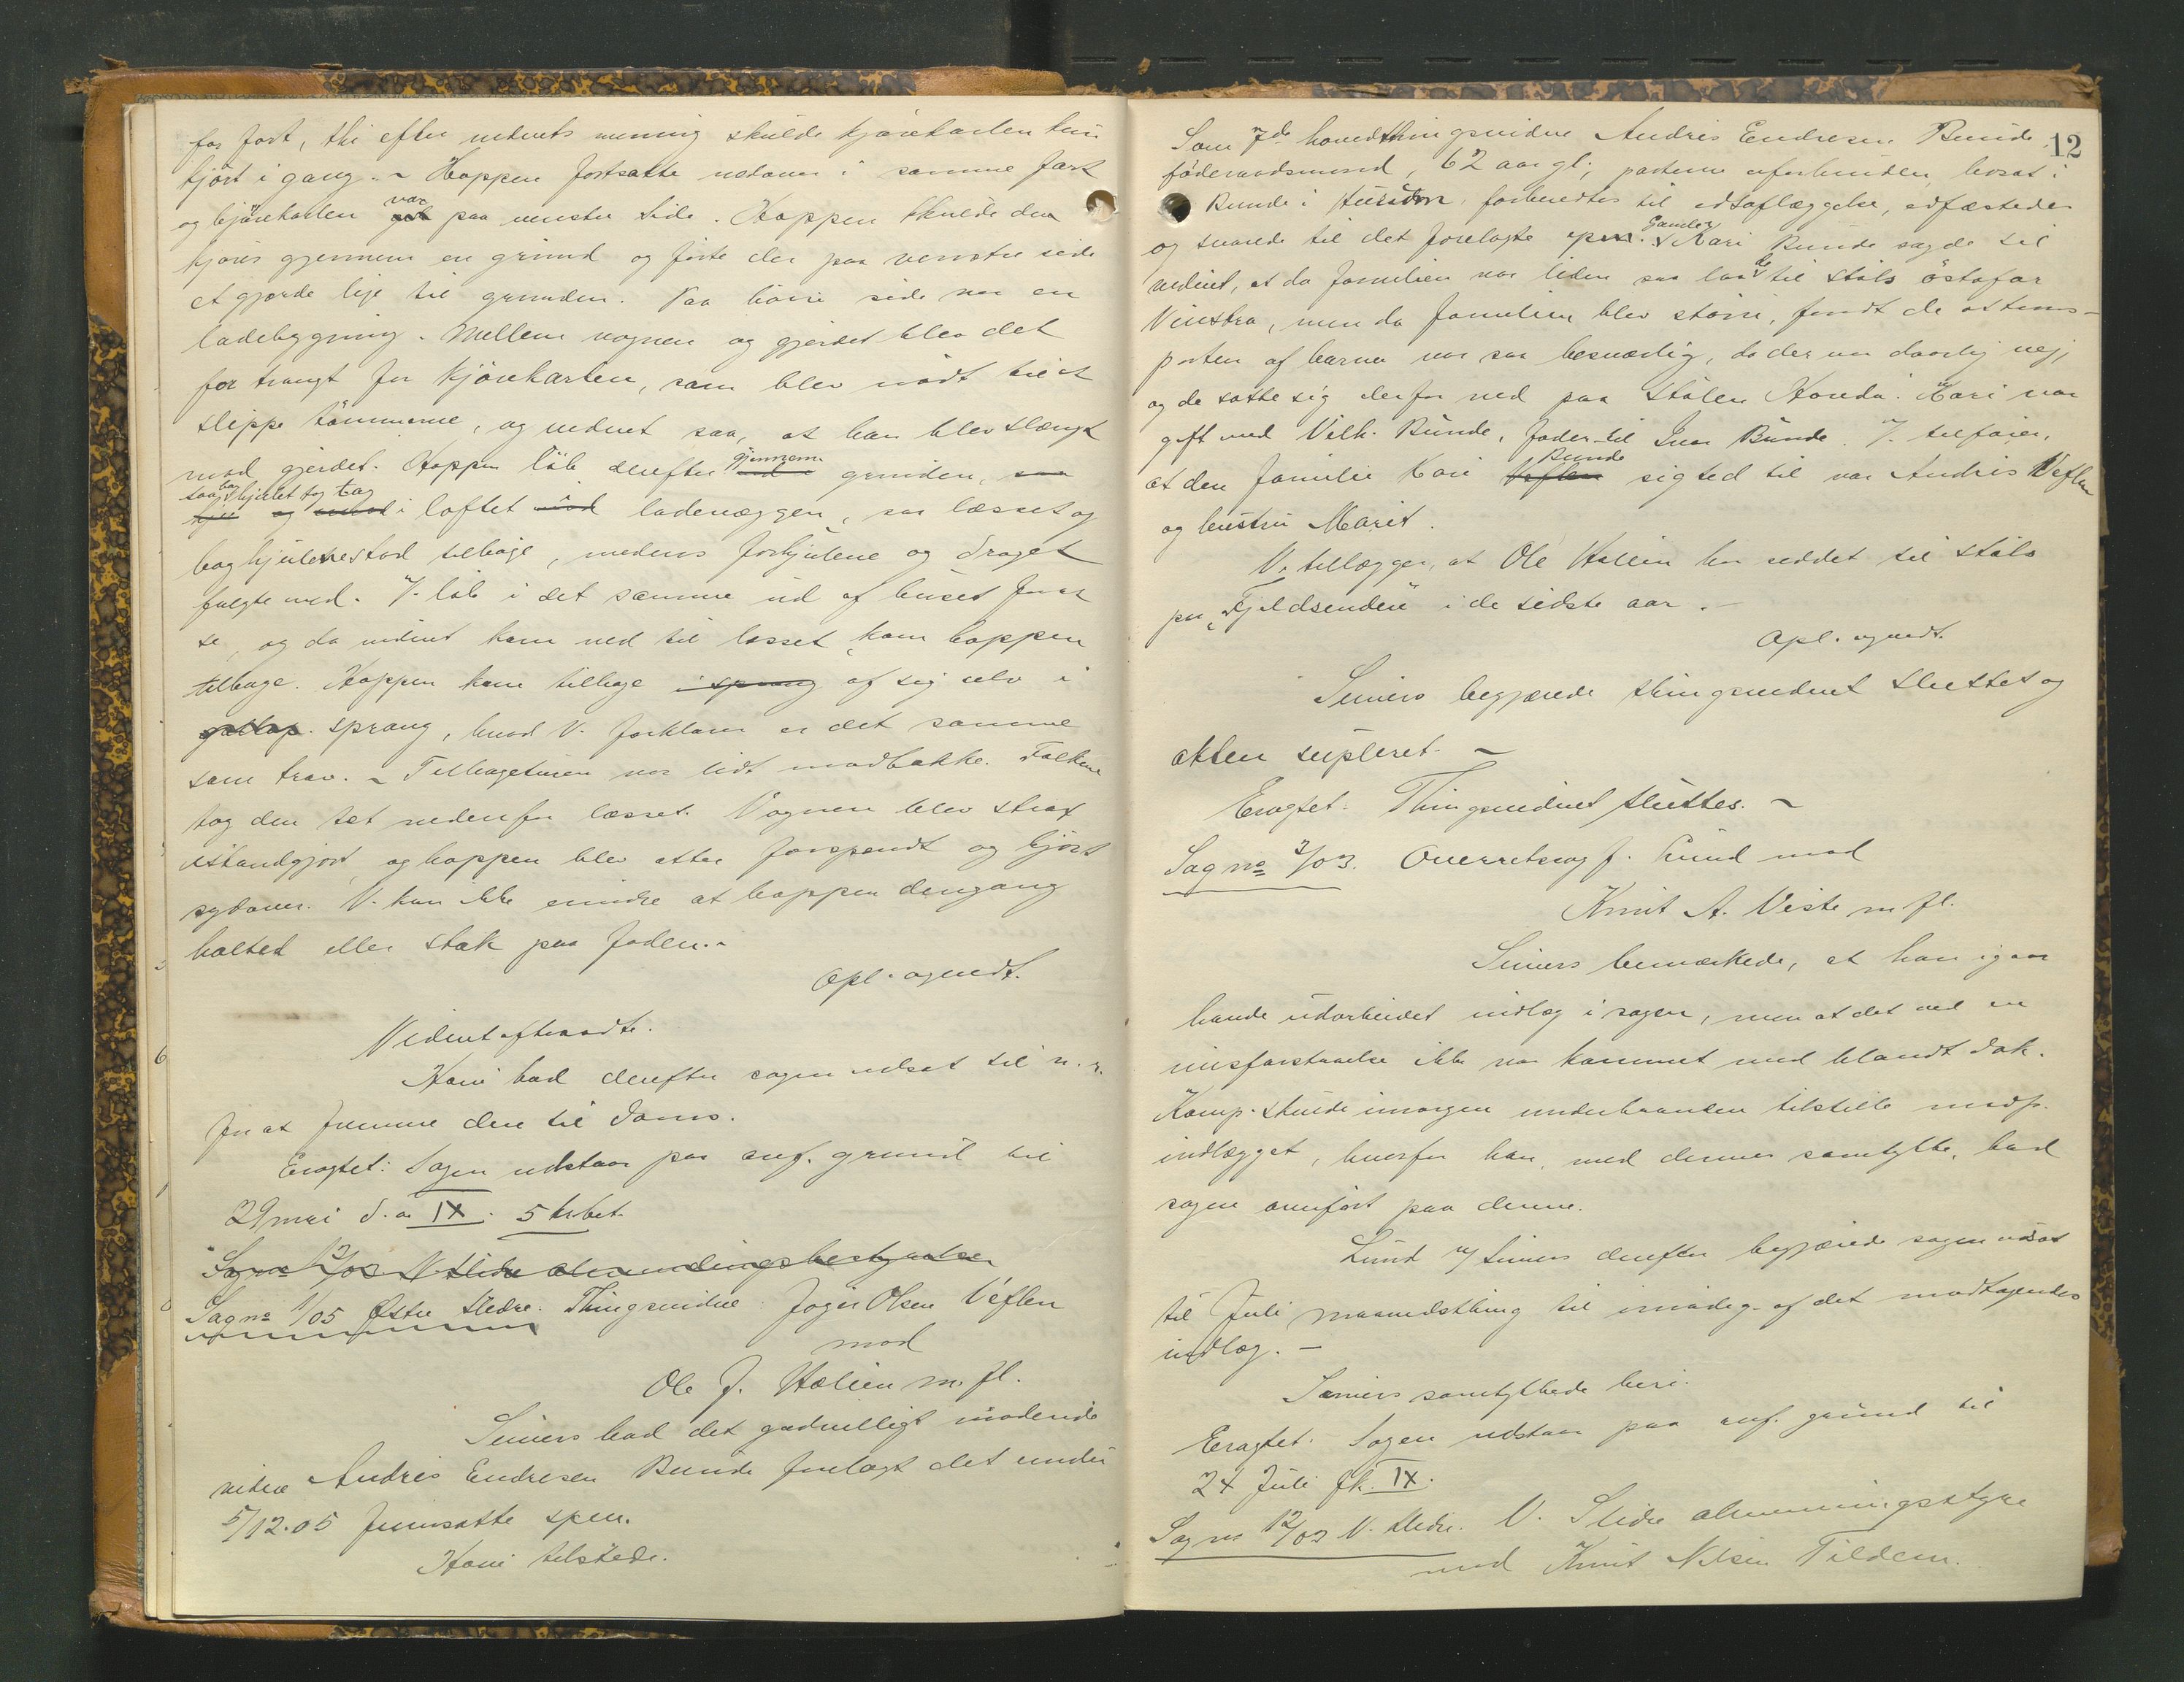 for fort, thi efter vidnets mening skulde kjørekarlen kun
kjørt i gang. - Hoppen fortsatte nedover i samme fart
og kjørekarlen var paa venstre side. Hoppen skulde der
kjøres gjennem en grind og førte der paa venstre side
et gjerde lige til grinden. Paa høire side var en
ladebygning. Mellem vognen og gjerdet blev det
for trangt for kjørekarlen, som blev nødt til at
slippe tømmerne, og vidnet saa, at han blev slængt
mod gjerdet. Hoppen løb derefter gjennem grinden,
saa baghjulet tog tag i loftet ladevæggen, saa læsset og
baghjulene stod tilbage, medens forhjulene og draget
fulgte med. V. løb i det samme ud af huset for at
se, og da vidnet kom ned til læsset, kom hoppen
tilbage. Hoppen kom tilbage i sprang af sig selv i
gallop. sprang, hvad V. forklarer er det samme
som trav. - Tilbageturen var lidt modbakke. Folkene
tog den tæt nedenfor læsset. Vognen blev strax
istandgjort, og hoppen blev atter forspændt og kjørt
sydover. V. kan ikke erindre at hoppen dengang
halted eller stak paa foden. -
Opl. og vedt.
Vidnet aftraadte.
Hovi bad derefter sagen udsat til n. r.
for at fremme den til doms.
Eragtet: Sagen udstaar paa anf. grund til
29 mai d. a. IX. 5 k. bet.
Sag no 12/03 N. Slidre almendingsbestyrelse
Sag no 11/05 Østre Slidre. Thingsvidne: Jøger Olsen Veflen
mod
Ole J. Hælien m. fl.
Siniers bad det godvilligt mødende
vidne Andris Endresen Runde forelagt det under
5/12.05 fremsatte spm.
Hovi tilstede.
12
Som 7de hovedthingsvidne Andris Endresen Runde
føderaadsmand, 62 aar gl., parterne uforbunden, bosat i
Runde i Hurum, forberedtes til edsaflæggelse, edfæstedes
og svarede til det forelagte spm. Gamle Kari Runde sagde til
vidnet, at da familien var liden saa laa de til støls østafor
Vinstra, men da familien blev større, fandt de at trans-
porten af barna var saa besværlig, da der var daarlig vej,
og de satte sig derfor ned paa stølen Hovda. Kari var
gift med Vilh. Runde, fader til Ivar Runde. V. tilføier,
at den familie Kari Runde sigted til var Andris Veflen
og hustru Marit.
V. tillægger, at Ole Hælien har siddet til støls
paa „Fjeldsenden" i de sidste aar. -
Opl. og vedt.
Siniers begjærede thingsvidnet sluttet og
akten supleret. -
Eragtet: Thingsvidnet sluttes. -
Sag no 3/03. Overretssag f. Lund mod
Knut A. Viste m. fl.
Siniers bemærkede, at han igaar
havde udarbeidet indlæg i sagen, men at det ved en
misforstaaelse ikke var kommet med blandt dok.
Komp. skulde imorgen underhaanden tilstille modp.
indlægget, hvorfor han, med dennes samtykke, bad
sagen anført paa denne.
Lund v/ Siniers derefter begjærede sagen udsat
til Juli maanedsthing til imødeg. af det modtagendes
indlæg. -
Siniers samtykkede heri.
Eragtet: Sagen udstaar paa anf. grund til
24 Juli fk. IX.
Sag no 12/03 N. Slidre. V. Slidre almenningsstyre
mod Knut Nilsen Tildem.